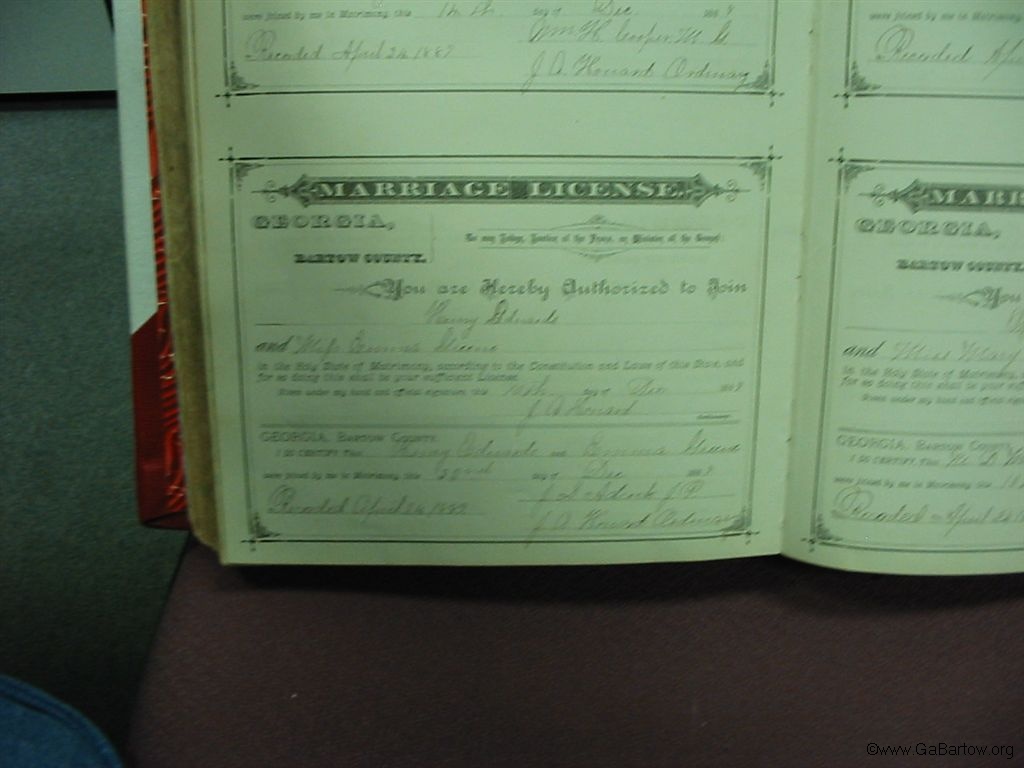 were joined by me in Matrimony this day of Dec. 188
Recorded April 24 1889
J. A. Howard Ordinary
were joined by me in Matrimony
Recorded
MARRIAGE LICENSE.
GEORGIA,
BARTOW COUNTY.
To any Judge, Justice of the Peace, or Minister of the Gospel:
You are Hereby Authorized to Join
Henry Edwards
and Miss Emma Greene
in the Holy State of Matrimony, according to the Constitution and Laws of this State, and
for so doing this shall be your sufficient License.
Given under my hand and official signature, this day of Dec 188
J. A. Howard
GEORGIA, BARTOW COUNTY.
I DO CERTIFY That Henry Edwards and Emma Greene
were joined by me in Matrimony this day of Dec 188
Recorded April 24 1889
J. P.
J. A. Howard Ordinary
MARR
GEORGIA,
BARTOW COUNTY.
You
and Miss Mary
in the Holy State of Matrimony,
for so doing this shall be your
Given under my hand and official
GEORGIA, BARTOW COUNTY.
I DO CERTIFY That
were joined by me in Matrimony this
Recorded April
©www.GaBartow.org